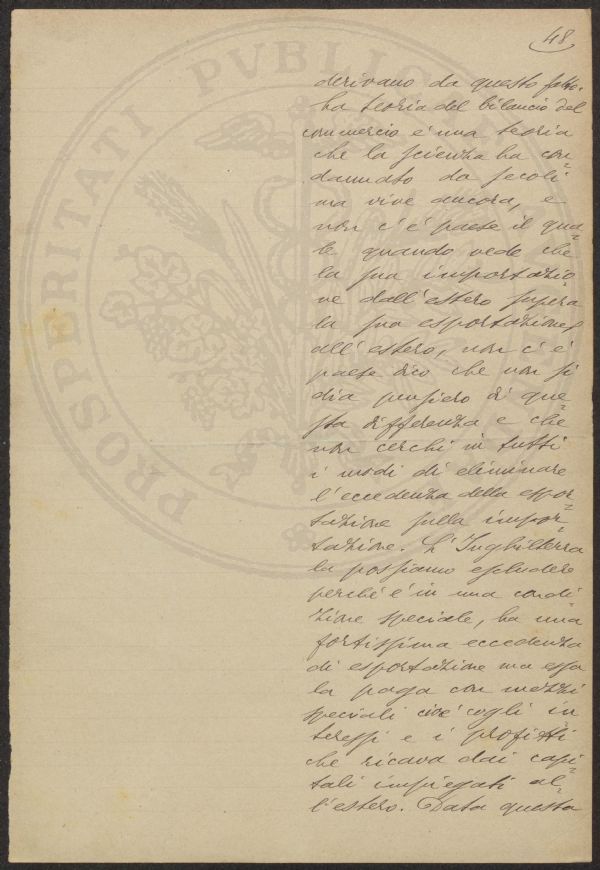 48
derivano da questo fatto.
La teoria del bilancio del
commercio è una teoria
che la scienza ha con
dannato da secoli
ma vive ancora, e
non c'è paese il qua-
le quando vede che
la sua importazio-
ne dall'estero supera
la sua esportazione
all'estero, non c'è
paese dico che non si
dia pensiero di que-
sta differenza e che
non cerchi in tutti
i modi di eliminare
l'eccedenza della espor-
tazione sulla impor-
tazione. L'Inghilterra
la possiamo escludere
perchè è in una condi
zione speciale, ha una
fortissima eccedenza
di esportazione ma essa
la paga con mezzi
speciali cioè cogli in
teressi e i profitti
che ricava dai capi-
tali impiegati al-
l'estero. Data questa
PROSPERITATI PVBLICAE